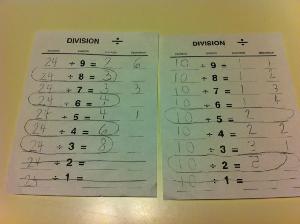 DIVISION ÷
24 ÷ 9 = 2 6
24 ÷ 8 = 3
24 ÷ 7 = 3 3
24 ÷ 6 = 4
24 ÷ 5 = 4
24 ÷ 4 = 6
24 ÷ 3 = 8
24 ÷ 2 =
24 ÷ 1 =
DIVISION ÷
10 ÷ 9 = 1 1
10 ÷ 8 = 1 2
10 ÷ 7 = 1 3
10 ÷ 6 = 1 4
10 ÷ 5 = 2
10 ÷ 4 = 2 2
10 ÷ 3 = 3 1
10 ÷ 2 =
10 ÷ 1 =